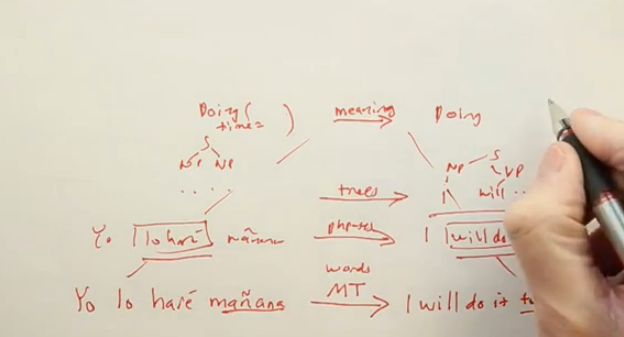 Doing( meaning Doing
time= )
S S
NP NP NP VP
. . . . I will ..
trees
Yo lo haré mañana phrases I will do
words
Yo lo haré mañana MT I will do it